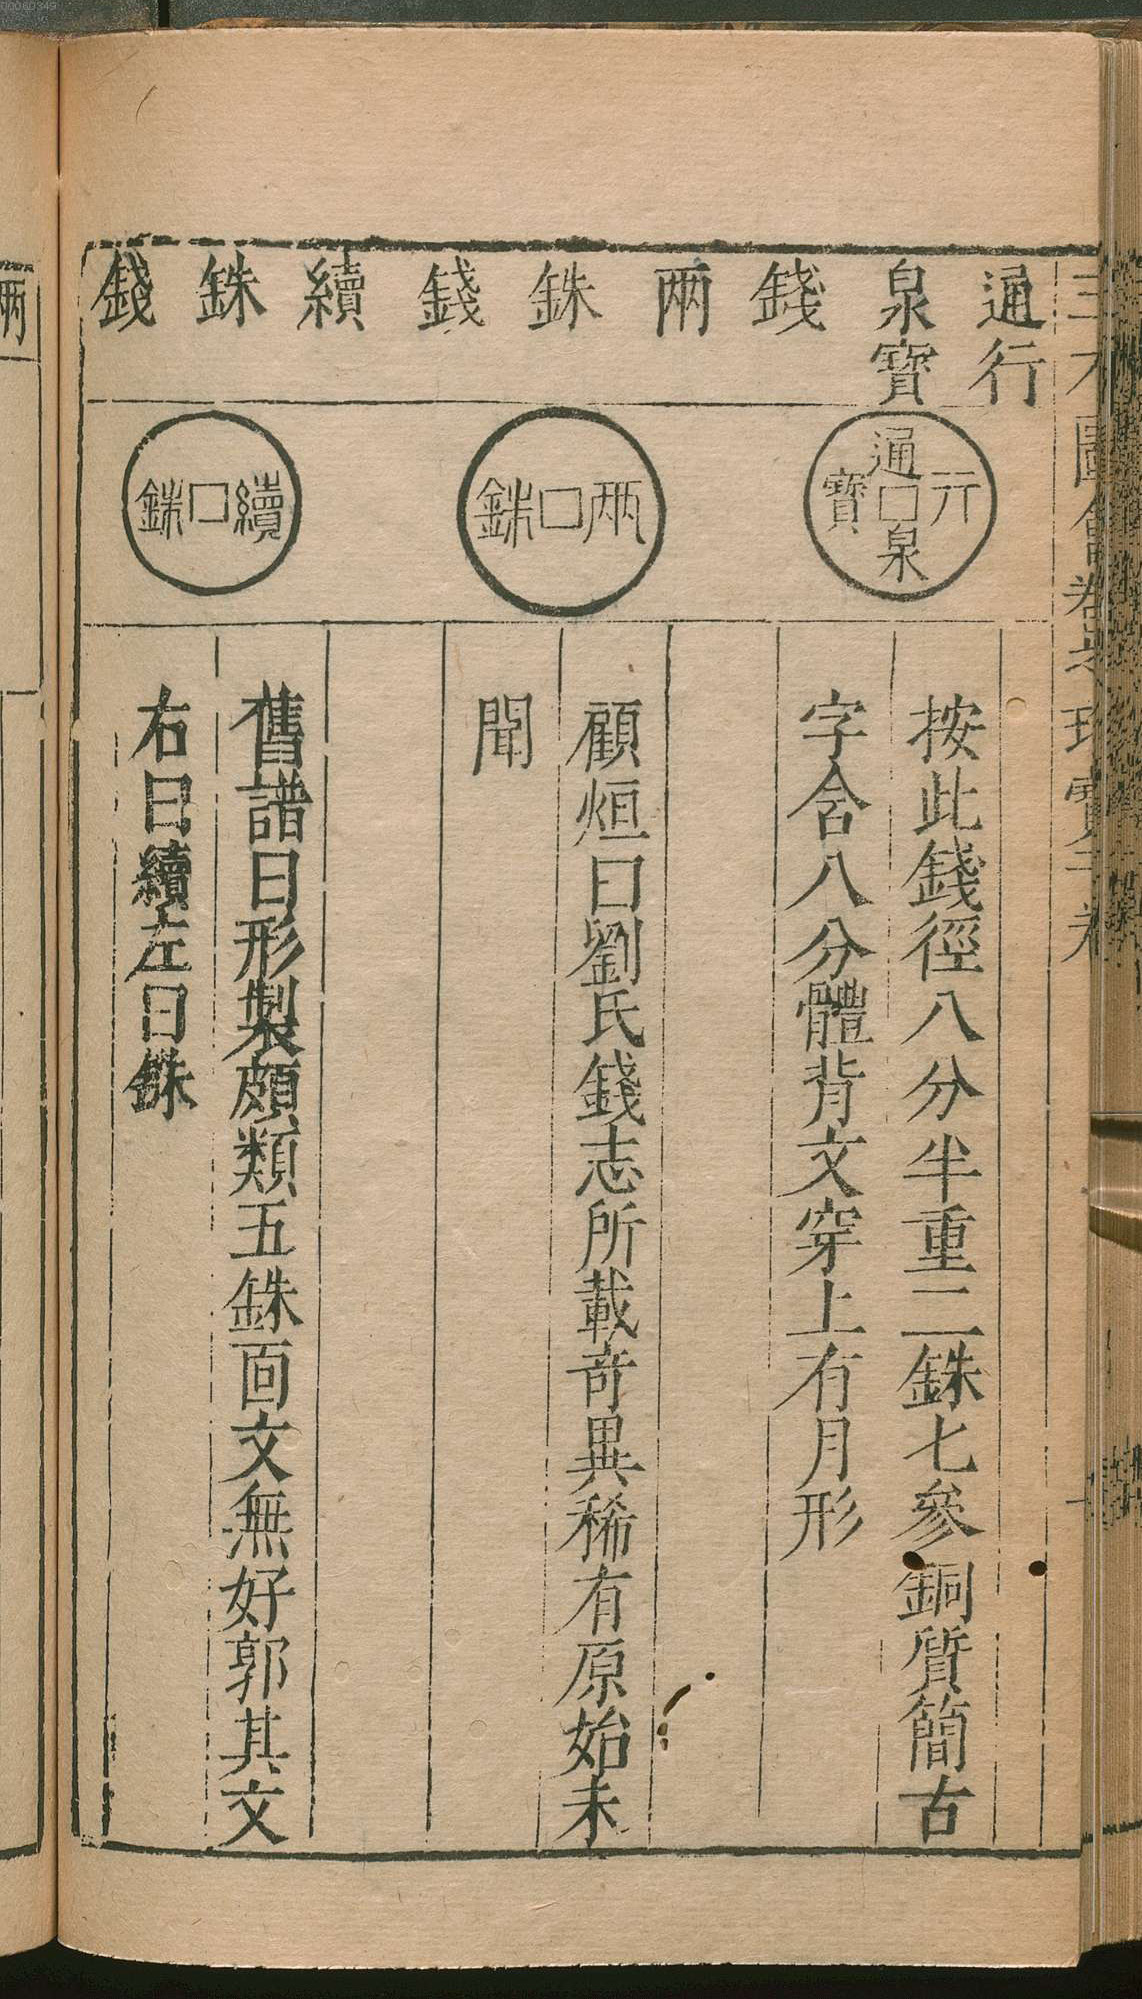 通行
泉寶
錢
通行泉寶
按此錢徑八分半重二銖七參銅質簡古
字含八分體背文穿上有月形
兩
銖
錢
兩銖
顧烜曰劉氏錢志所載奇異稀有原始未
聞
續
銖
錢
續銖
舊譜曰形製頗類五銖面文無好郭其文
右曰續左曰銖
兩
00000349